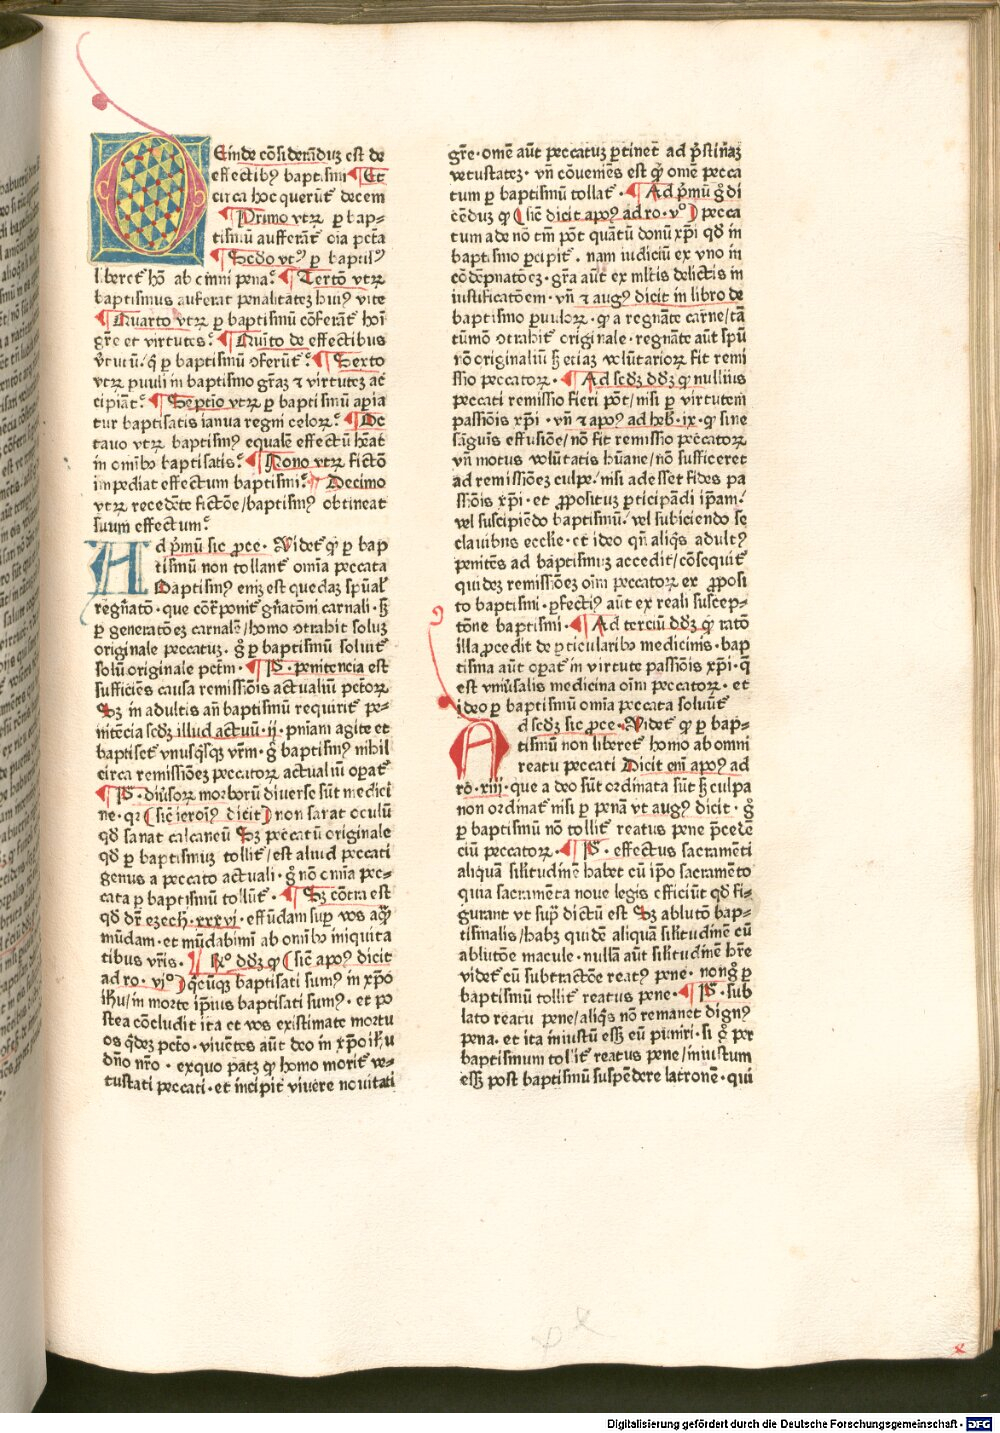 Einde cōsiderāduꝫ est de
effectibꝰ baptismi ¶ Et
circa hoc querūt̄ decem
¶ Primo vtꝝ ꝑ bap⸗
tismū aufferāt̄ oīa pctā
¶ Scdo vtꝝ ꝑ baptisꝰ
liberet̄ hō ab omni pena? ¶ Tertō vtꝝ
baptismus auferat penalitateꝫ huiꝰ vite
¶ Quarto vtꝝ ꝑ baptismū cōferāt̄ hoī
gr̄e et virtutes? ¶ Quīto de effectibus
v̄tutū / q̄ ꝑ baptismū ꝯferūt̄? ¶ Sexto
vtꝝ puuli in baptismo gr̄aꝫ ⁊ virtuteꝫ ac
cipiāt? ¶ Septīo vtꝝ ꝑ baptismū aꝑia
tur baptisatis ianua regni celoꝝ? ¶ Oc
tauo vtꝝ baptismꝰ equalē effectū hēat
in omībꝫ baptisatis? ¶ Nono vtꝝ fictō
impediat effectum baptismi? ¶ Decimo
vtꝝ recedēte fictōe / baptismꝰ obtineat
suum effectum?
Ad p̄mū sic ꝓce. Videt̄ ꝙ ꝑ bap
tismū non tollant̄ omīa peccata
Baptismꝰ enīꝫ est quedaꝫ spūal̄
regn̄atō. que cōr̄ponit̄ gn̄atōni carnali. sꝫ
ꝑ generatōeꝫ carnalē / homo ꝯtrahit soluꝫ
originale peccatuꝫ. g̊ ꝑ baptismū soluit̄
solū originale pctm̄. ¶ P̄. penitencia est
sufficiēs causa remissiōis actualiū pctōꝝ
Sꝫ in adultis an̄ baptismū requirit̄ pe⸗
nitēcia scdꝫ illud actuū. ij. pniam agite et
baptiset̄ vnusq̄sqꝫ vr̄m. g̊ baptismꝰ nihil
circa remissiōeꝫ peccatoꝝ actualiū oꝑat̄
¶ P̄. diūsoꝝ morborū diuerse sūt medici
ne. qꝛ (sic̄ ieroīꝰ dicit) non sanat oculū
qd̄ sanat calcaneū Sꝫ peccatū originale
qd̄ ꝑ baptismuꝫ tollit̄ / est aliud peccati
genus a peccato actuali. g̊ nō omīa pec⸗
cata ꝑ baptismū tollūt̄. ¶ Sꝫ cōtra est
qd̄ dr̄ ezech. xxxvj. effūdam suꝑ vos aq̄ꝫ
mūdam. et mūdabimī ab omībꝫ iniquita
tibus vr̄is. ¶ Rº dd̄ꝫ ꝙ (sic̄ apoꝰ dicit
ad ro. vjº) q̄cūqꝫ baptisati sumꝰ in xp̄o
ih̄u / in morte ip̄ius baptisati sumꝰ. et po
stea cōcludit ita et vos existimate mortu
os q̄deꝫ pctō. viuētes aūt deo in xp̄o ih̄u
dn̄o nr̄o. exquo patꝫ ꝙ homo morit̄ ve⸗
tustati peccati. et incipit viuere nouitati
gr̄e. omē aūt peccatuꝫ ꝑtinet̄ ad p̄stinaꝫ
vetustateꝫ. vn̄ cōueniēs est ꝙ omē pecca
tum ꝑ baptismū tollat̄. ¶ Ad p̄mū g̊ di
cēduꝫ ꝙ (sic̄ dicit apoꝰ ad ro. vº) pecca
tum ade nō tm̄ pōt quātū donū xp̄i qd̄ in
baptismo ꝑcipit̄. nam iudiciū ex vno in
cōdēpnatōeꝫ. gr̄a aūt ex mltis delictis in
iustificatōem. vn̄ ⁊ augꝰ dicit in libro de
baptismo puuloꝝ. ꝙ a regnāte carne / tā
tūmō ꝯtrahit̄ originale. regnāte aūt spū
rō originaliū sꝫ etiaꝫ volūtarioꝝ fit remi
ssio peccatoꝝ. ¶ Ad scdꝫ dd̄ꝫ ꝙ nullius
peccati remissio fieri pōt / nisi ꝑ virtutem
passiōis xp̄i. vn̄ ⁊ apoꝰ ad heb. ix. ꝙ sine
sāguīs effusiōe / nō fit remissio peccatoꝝ
vn̄ motus volūtatis hūane / nō sufficeret
ad remissiōeꝫ culpe / nisi adesset fides pa
ssiōis xp̄i. et ꝓpositum ꝑticipādi ip̄am /
vel suscipiēdo baptismū / vel subiciendo se
clauibus eccl̄ie. et ideo qn̄ aliqs̄ adultꝰ
penitēs ad baptismuꝫ accedit / cōsequit̄
quideꝫ remissiōeꝫ oīm peccatoꝝ ex ꝓposi
to baptismi. ꝑfectiꝰ aūt ex reali suscep⸗
tōne baptismi. ¶ Ad terciū dd̄ꝫ ꝙ ratō
illa ꝓcedit de ꝑticularibꝫ medicinis. bap
tisma aūt oꝑat̄ in virtute passiōis xp̄i. q̄
est vniūsalis medicina oīm peccatoꝝ. et
ideo ꝑ baptismū omīa peccata soluūt̄
Ad scdꝫ sic ꝓce. Videt̄ ꝙ ꝑ bap⸗
tismū non liberet̄ homo ab omni
reatu peccati Dicit enī apoꝰ ad
ro. xiij. que a deo sūt ordinata sūt sꝫ culpa
non ordinat̄ nisi ꝑ penā vt augꝰ dicit. g̊
ꝑ baptismū nō tollit̄ reatus pene p̄cedē
ciū peccatoꝝ. ¶ P̄. effectus sacramēti
aliquā silitudinē habet cū ip̄o sacramēto
quia sacramēta noue legis efficiūt qd̄ fi⸗
gurant vt supͣ dictū est Sꝫ ablutō bap⸗
tismalis / habꝫ quidē aliquā silitudinē cū
ablutōe macule. nullā aūt silitudinē hr̄e
videt̄ cū subtractōe reatꝰ pene. non g̊ ꝑ
baptismū tollit̄ reatus pene. ¶ P̄. sub
lato reatu pene / aliqs̄ nō remanet dignꝰ
pena. et ita iniustū esꝫ eū puniri. si g̊ per
baptismum tollit̄ reatus pene / iniustum
esꝫ post baptismū suspēdere latronē. qui
Digitalisierung gefördert durch die Deutsche Forschungsgemeinschaft - DFG